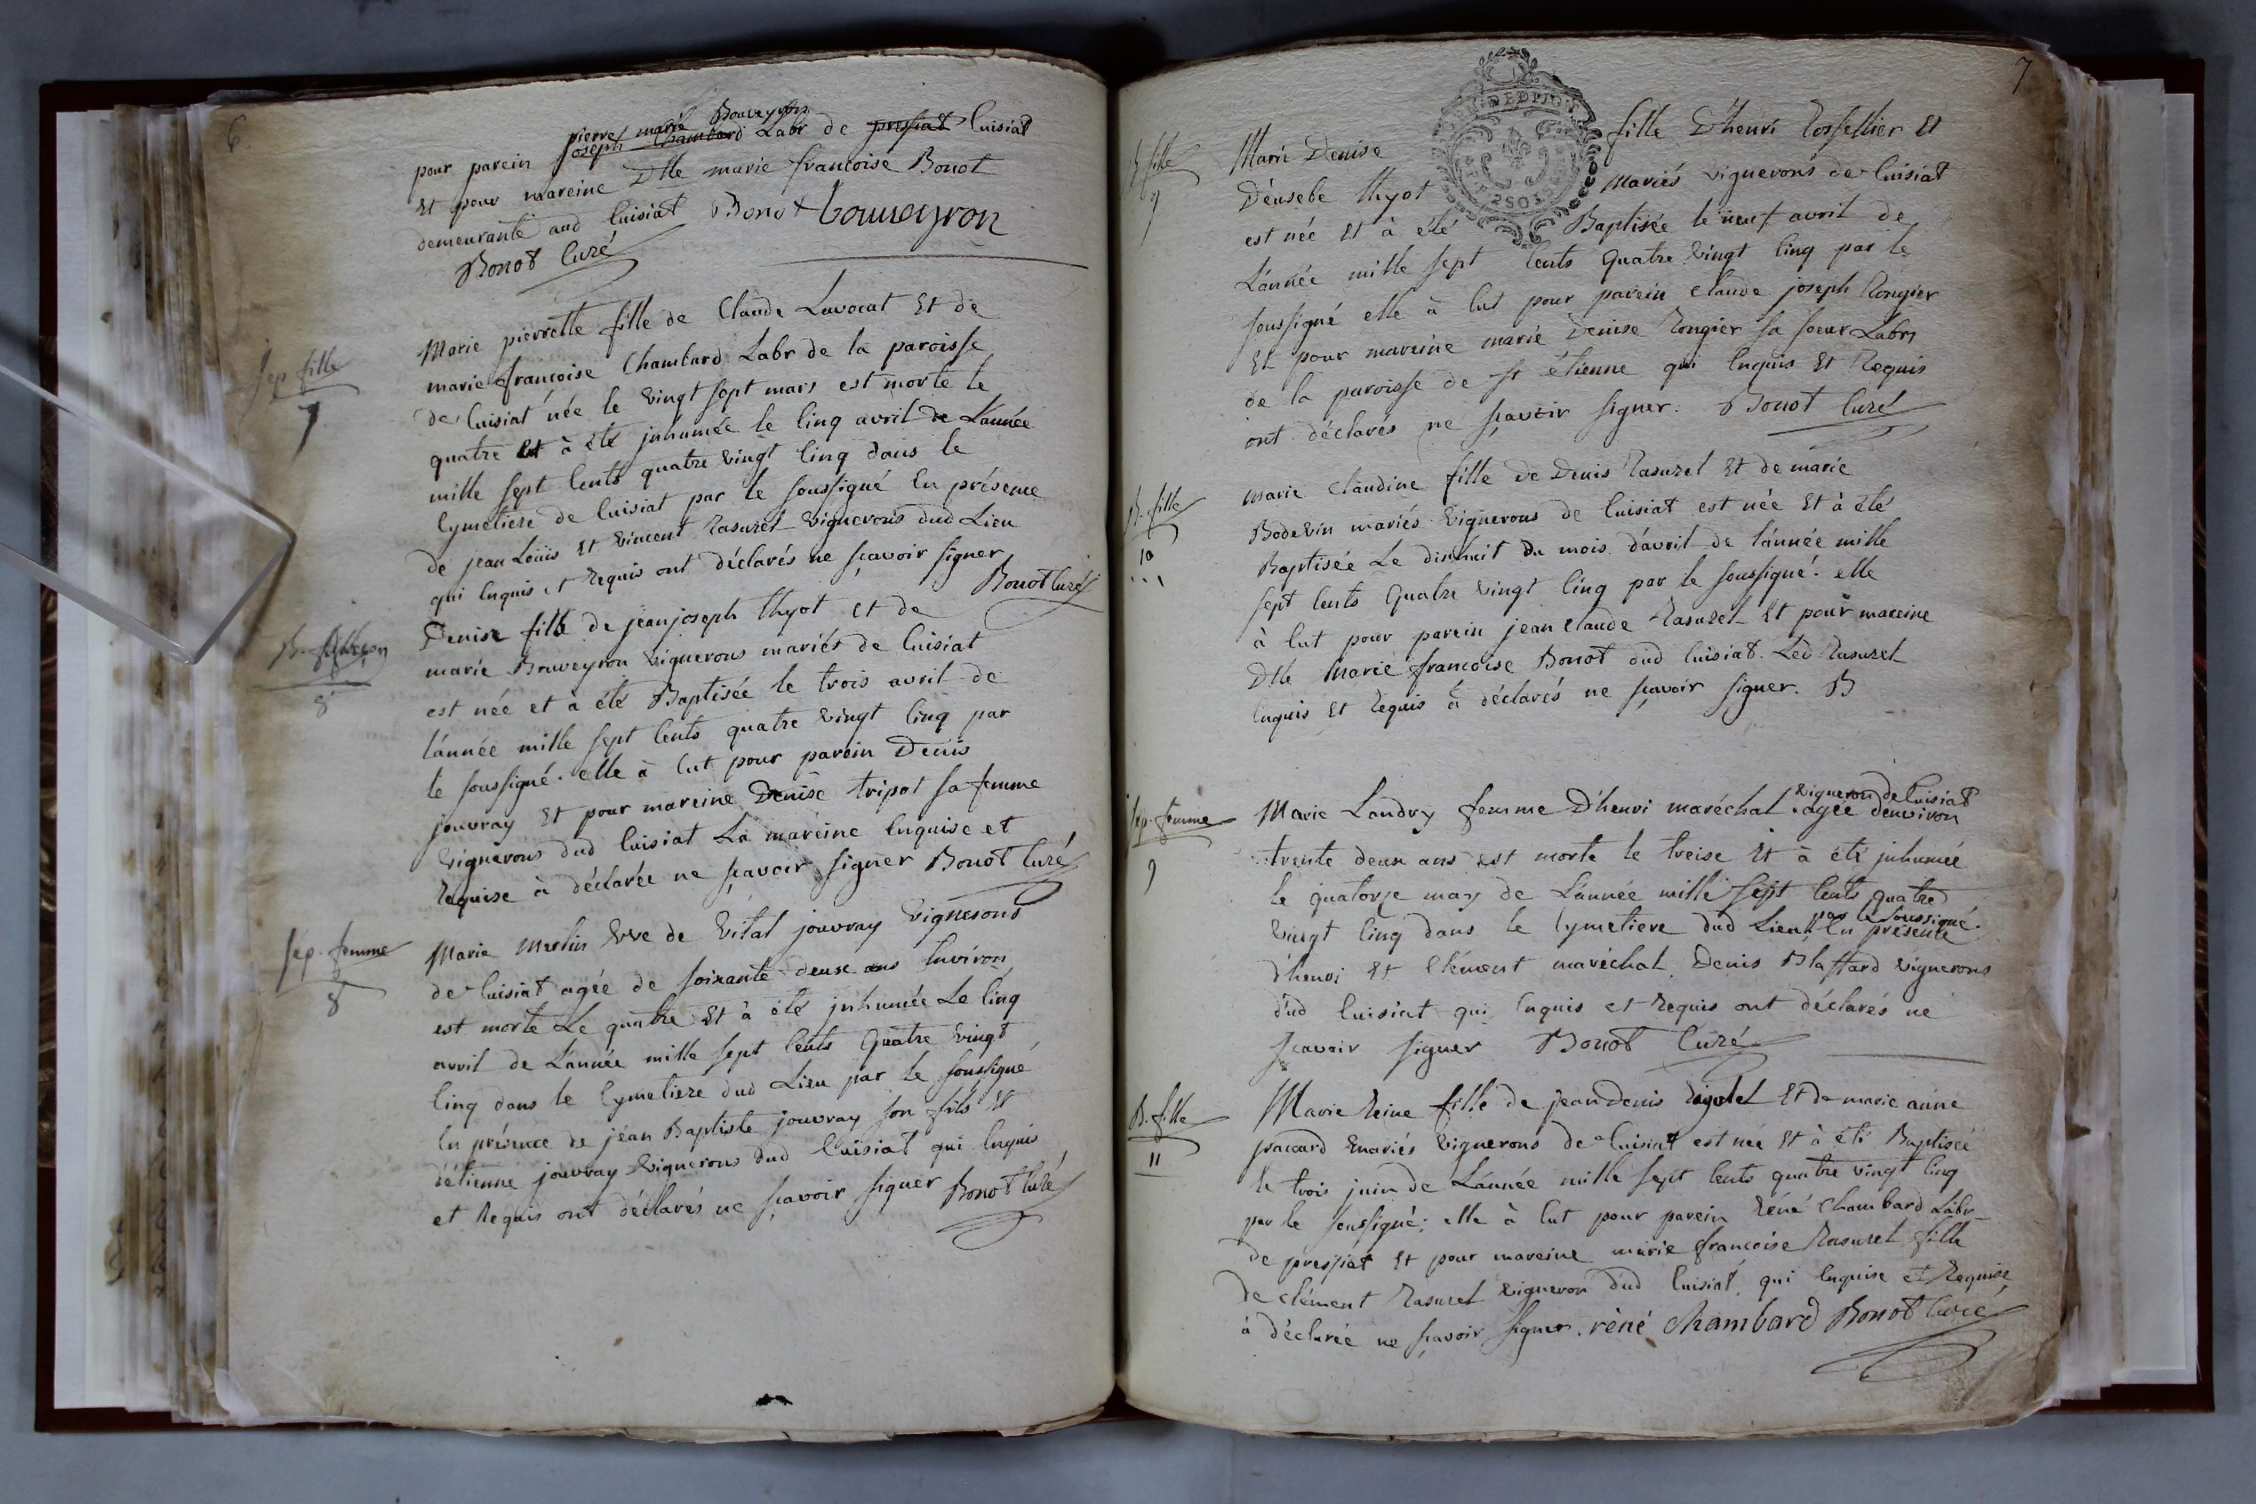 6
pierre marie Bouveyron
pour parein joseph Chambard Labr de pressiat Cuisiat
Et pour mareine Dlle marie francoise Bonot
demeurante aud Cuisiat Bonot bouveyron
Bonot Curé
Sep fille
7
Marie pierrette fille de Claude Lavocat Et de
marie françoise Chambard Labr de la paroisse
de Cuisiat née le vingt sept mars est morte le
quatre Et à été jnhumée le Cinq avril de L'année
mille sept Cents quatre vingt Cinq dans le
Cymetiere de Cuisiat par le soussigné En présence
de jean Loüis Et vincent Rasurel vignerons dud Lieu
qui Enquis et Requis ont déclarés ne sçavoir signer
Bonot Curé
B.
8
Denise fille de jean joseph thyot et de
marie Bouveyron vignerons mariés de Cuisiat
est née et à été Baptisée le trois avril de
l'année mille sept Cents quatre vingt Cinq par
le soussigné. elle à Eut pour parein Denis
jouvray Et pour mareine Denise tripot sa femme
vignerons dud Cuisiat La mareine Enquise et
Requise à déclarée ne sçavoir signer Bonot Curé
sép. femme
8
Marie Merlin vve de vital jouvray vignerons
de Cuisiat agée de soixante deuse ans Environ
est morte Le quatre Et à été jnhumée Le Cinq
avril de L'année mille sept Cents Quatre vingt
Cinq dans le Cymetiere dud Lieu par le soussigné
En présence de jean Baptiste jouvray son fils Et
d'étienne jouvray vignerons dud Cuisiat qui Enquis
et Requis ont déclarés ne sçavoir signer Bonot Curé
7
B. fille
9
Marie Denise fille D'henri Rossellier Et
D'éusebe thyot Mariés vignerons de Cuisiat
est née Et à été Baptisée le neuf avril de
L'année mille sept Cents Quatre vingt Cinq par le
soussigné elle à Eut pour parein Claude joseph Rongier
Et pour mareine marie Denise Rongier sa soeur Labrs
de la paroisse de st étienne qui Enquis Et Requis
ont déclarés ne sçavoir signer. Bonot Curé
B. fille
10
marie Claudine fille de Denis Rasurel Et de marie
Bodevin mariés vignerons de Cuisiat est née Et à été
Baptisée Le dixhuit Du mois d'avril de l'année mille
sept Cents Quatre vingt Cinq par le soussigné. elle
à Eut pour parein jean Claude Rasurel Et pour mareine
Dlle Marie francoise Bonot dud Cuisiat. Led Rasurel
Enquis Et Requis à déclarés ne sçavoir signer. B
sep. femme
9
vigneron de Cuisiat
Marie Landry femme D'henri maréchal agée denviron
trente deux ans est morte le treise Et à été jnhumée
le quatorze may de L'année mille sept Cents quatre
par le soussigné
vingt Cinq dans le Cymetiere dud Lieu En présence
d'henri Et Clément maréchal Denis Blaffard vignerons
dud Cuisiat qui Enquis et Requis ont déclarés ne
sçavoir signer Bonot Curé
B. fille
11
Marie Reine fille de jean Denis Et de marie anne
paccard mariés vignerons de Cuisiat est née Et à été Baptisée
le trois juin de L'année mille sept Cents quatre vingt Cinq
par le soussigné; elle à Eut pour parein Réné Chambard Labr
de pressiat Et pour mareine marie francoise Rasurel fille
de Clément Rasurel vigneron dud Cuisiat, qui Enquise et Requise
à déclarée ne sçavoir signer. réné Chambard Bonot Curé